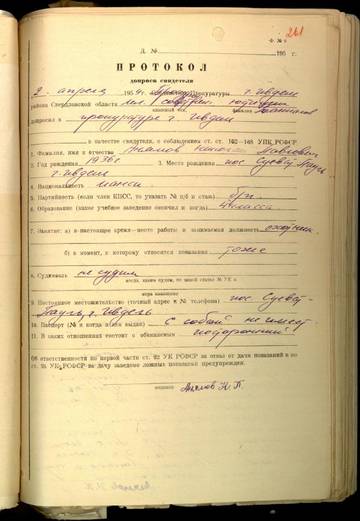 261
Ф. № 9
Д. № 195 г.
ПРОТОКОЛ
допроса свидетеля
2 апреля 1959 г. Прокуратуры г. Ивдель
района Свердловской области мл. советник юстиции
классный чин фамилия
допросил в прокуратуре г. Ивдель
в качестве свидетеля, с соблюдением ст. ст. 162—168 УПК РСФСР
1. Фамилия, имя и отчество Анямов Павлович
2. Год рождения 3. Место рождения пос Суеват Пауль
г. Ивдель
4. Национальность манси
5. Партийность (если член КПСС, то указать № п/б и стаж) б/п.
6. Образование (какое учебное заведение окончил и когда) 4 класса
7. Занятие: а) в настоящее время—место работы и занимаемая должность охотник
б) в момент, к которому относятся показания тоже
8. Судимость не судим
когда, каким судом, по какой статье УК и
мера наказания
9. Постоянное местожительство (точный адрес и № телефона) пос Суеват-
Пауль, г. Ивдель
10. Паспорт (№ и когда и кем выдан) с собой не имеет
11. В каких отношениях состоит с обвиняемым посторонний
Об ответственности по первой части ст. 92 УК РСФСР за отказ от дачи показаний и по
ст. 95 УК РСФСР за дачу заведомо ложных показаний предупрежден.
подпись Анямов Н. П.